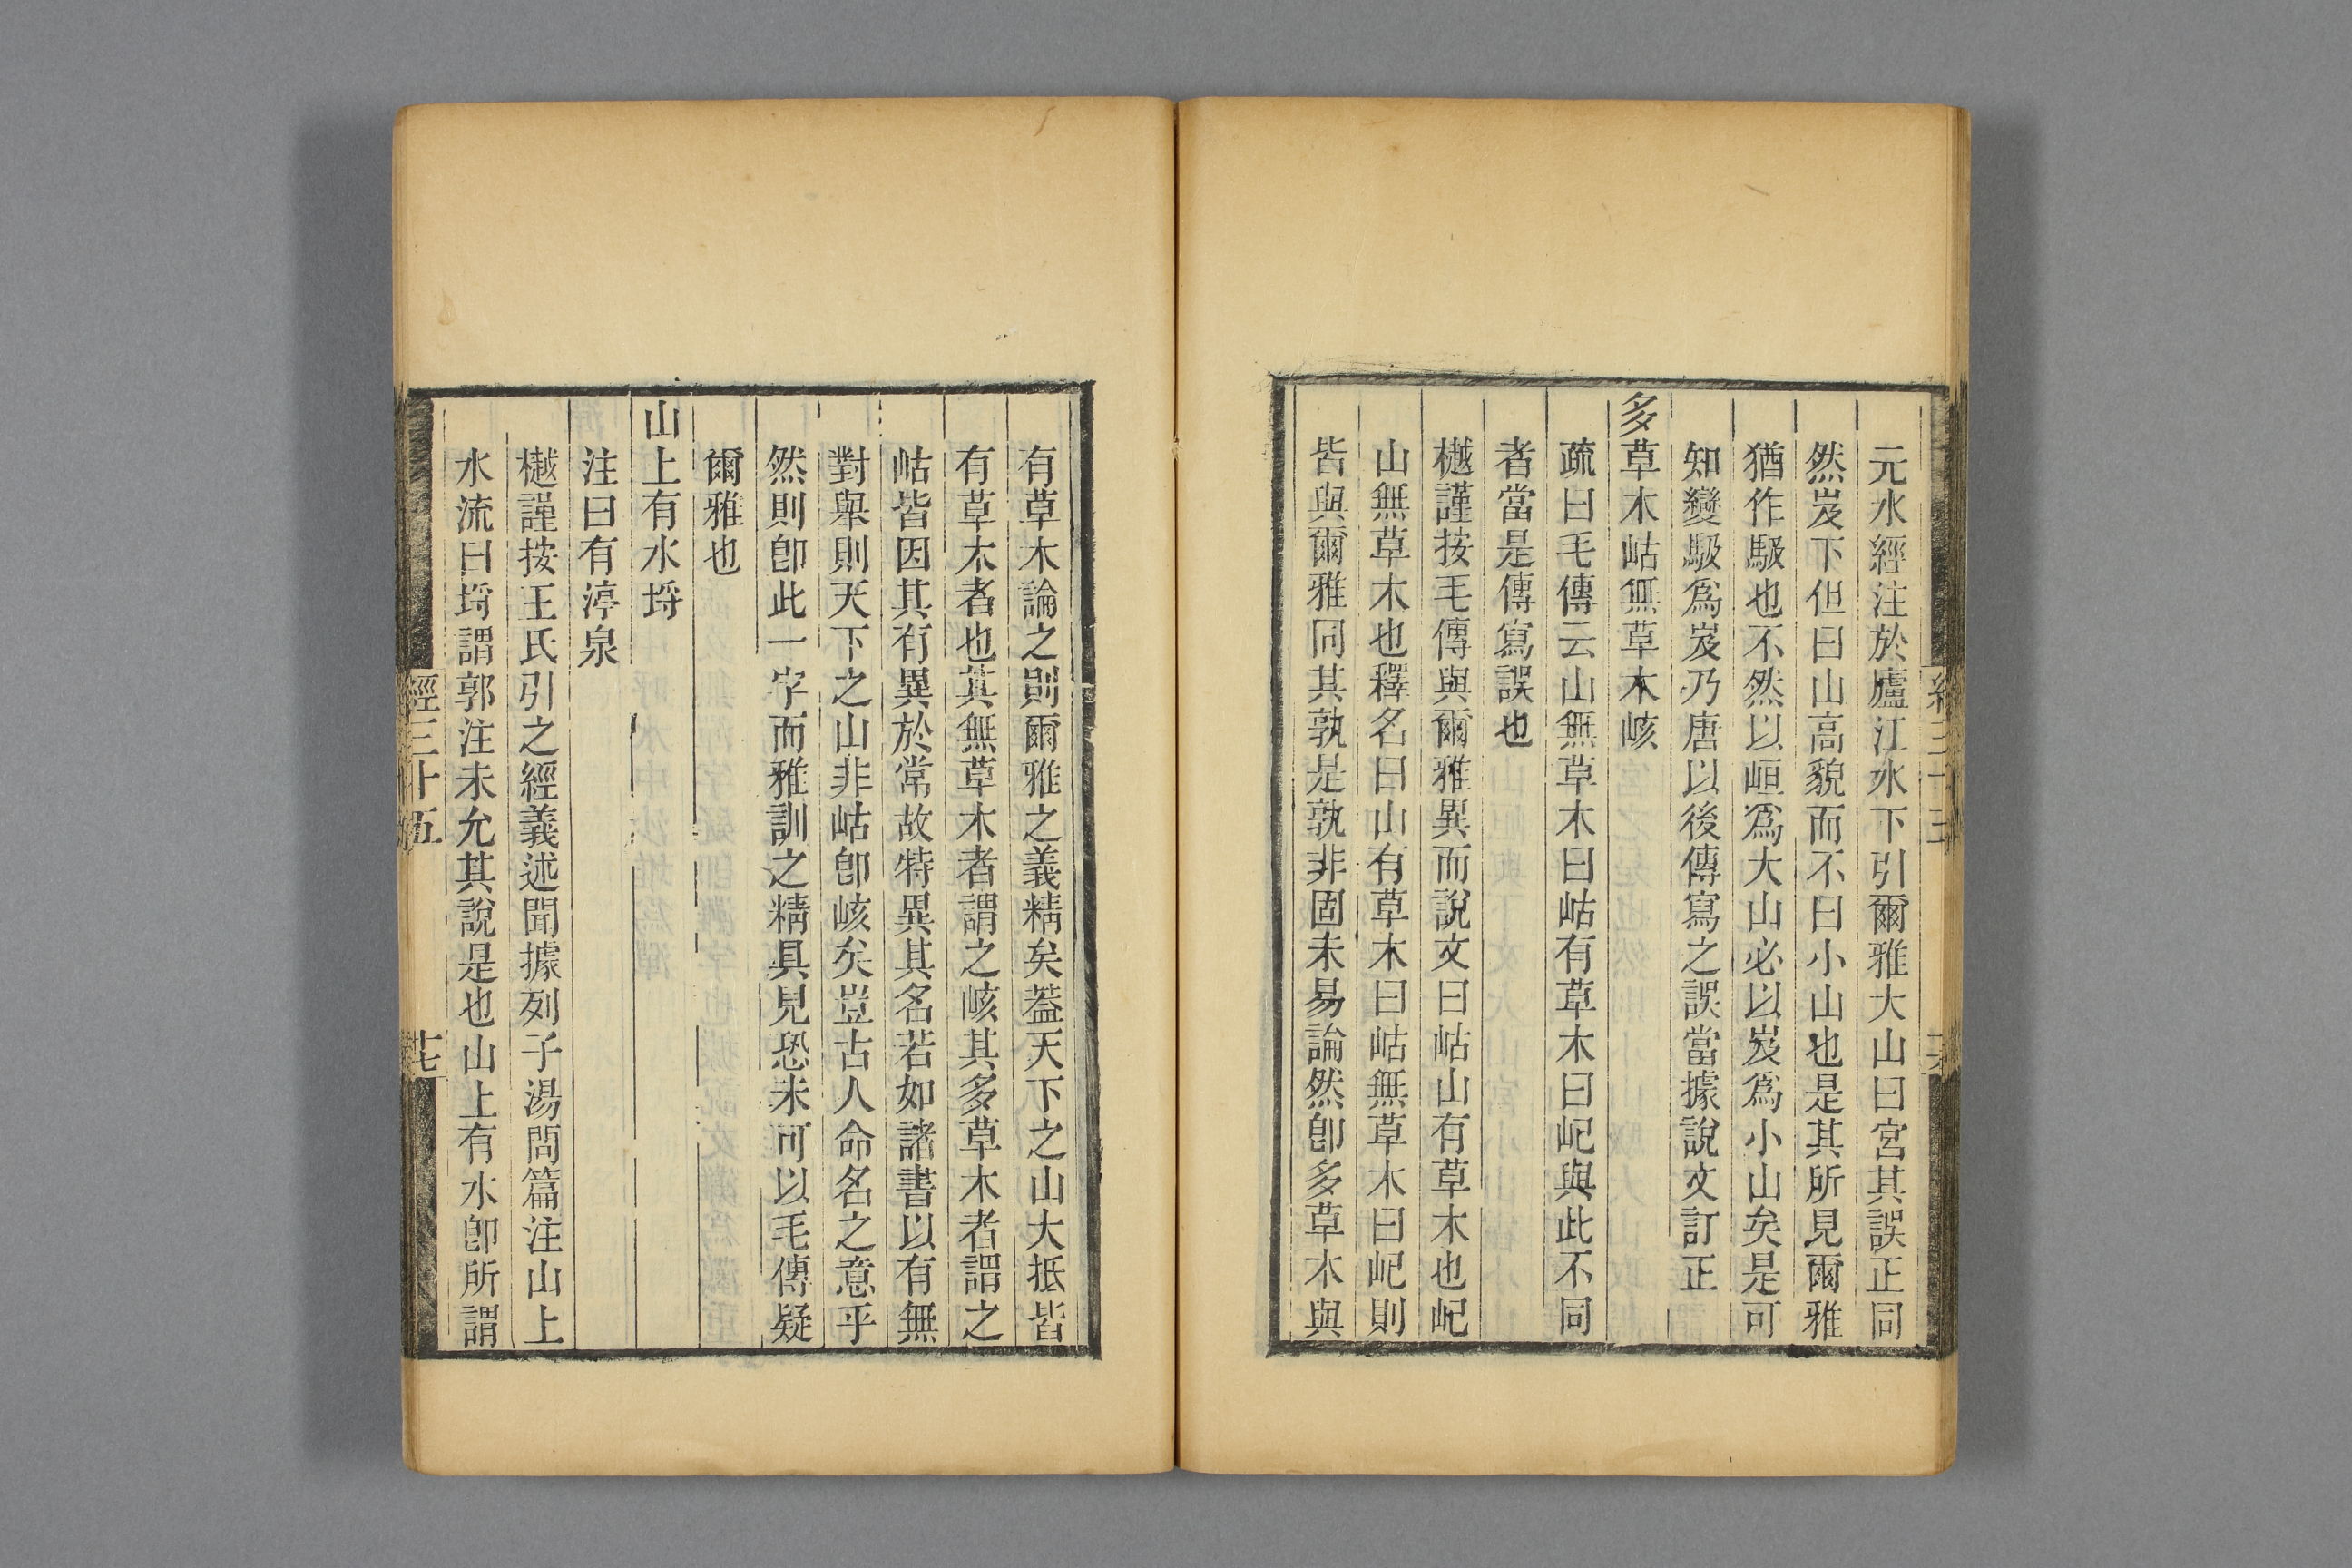 元水經注於廬江水下引爾雅大山曰宮其誤正同
然岌下但曰山高貌而不曰小山也是其所見爾雅
猶作馺也不然以峘爲大山必以岌爲小山矣是可
知變馺爲岌乃唐以後傳寫之誤當據說文訂正
多草木岵無草木峐
疏曰毛傳云山無草木曰岵有草木曰屺與此不同
者當是傳寫誤也
樾謹按毛傳與爾雅異而說文曰岵山有草木也屺
山無草木也釋名曰山有草木曰岵無草木曰屺則
皆與爾雅同其孰是孰非固未易論然卽多草木與
有草木論之則爾雅之義精矣葢天下之山大抵皆
有草木者也其無草木者謂之峐其多草木者謂之
岵皆因其有異於常故特異其名若如諸書以有無
對舉則天下之山非岵卽峐矣豈古人命名之意乎
然則卽此一字而雅訓之精具見恐未可以毛傳疑
爾雅也
山上有水埒
注曰有渟泉
樾謹按王氏引之經義述聞據列子湯問篇注山上
水流曰埒謂郭注未允其說是也山上有水卽所謂
經三十五
十七